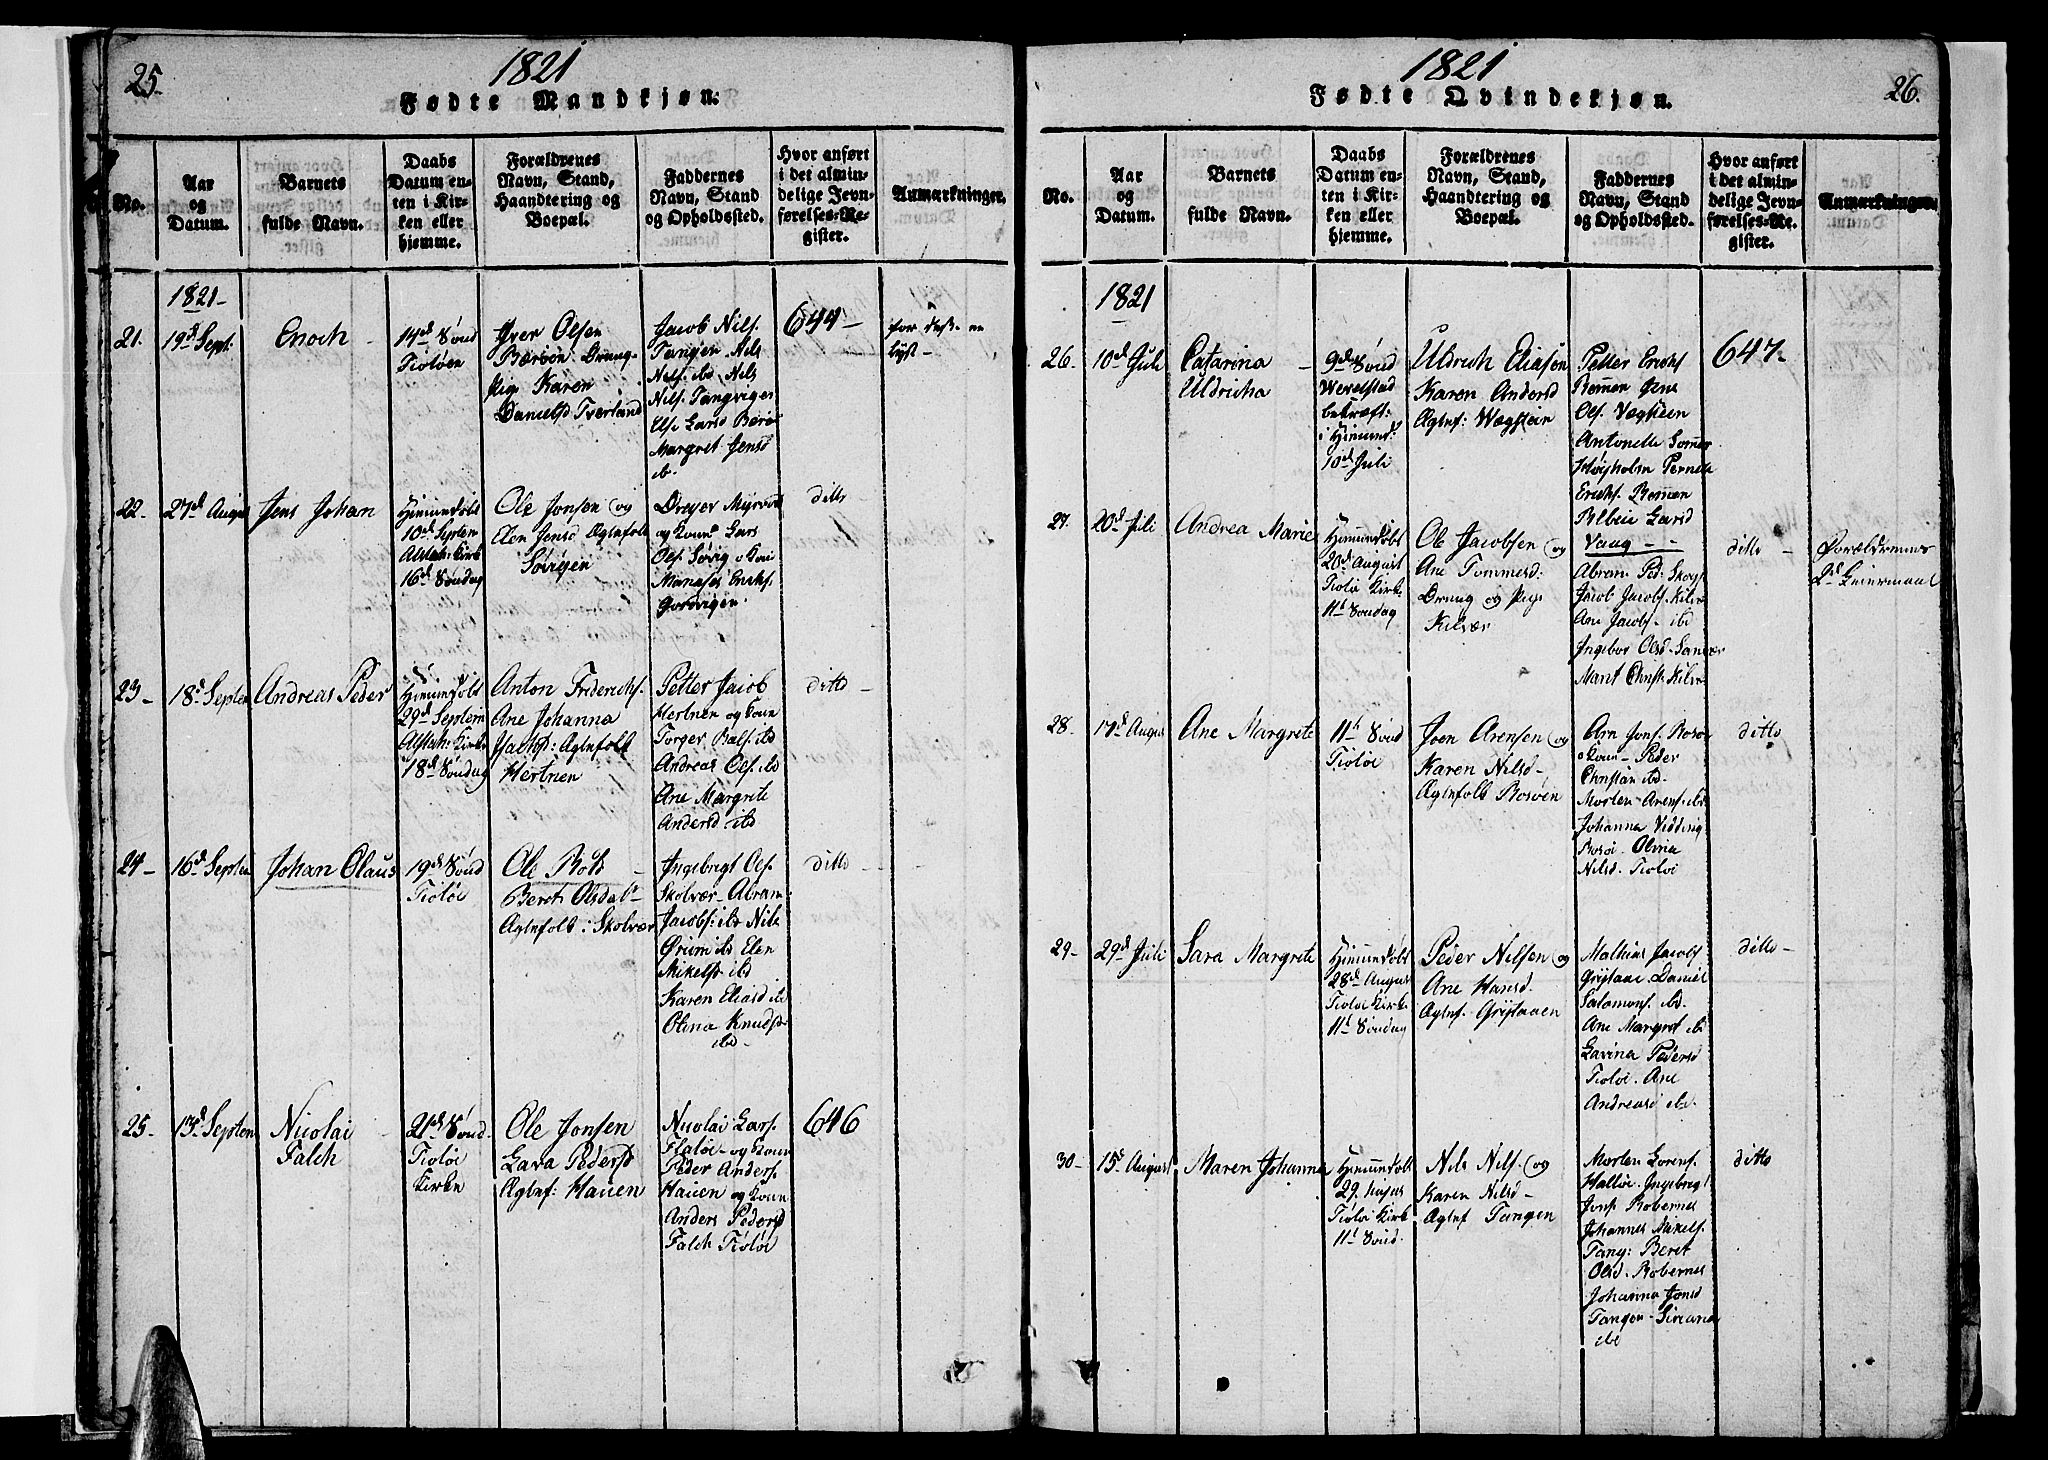 25.
1821
Fødte Mandkjøn.
No.
Aar
og
Datum.
Barnets
fulde Navn.
Daabs
Datum en-
ten i Kir-
ken eller
hjemme.
Forældrenes
Navn, Stand,
Haandtering og
Boepæl.
Faddernes
Navn, Stand
og Opholdssted.
Hvor anført
i det almin-
delige Jevn-
førelses-Re-
gister.
Anmærkninger.
1821-
21.
19d Sept.
Enoch
14d Sønd
Tiøtøen
Iver Olsen
Karen
Danielsd Tverland
Jacob Nils.
Tangen. Nils
Nils. ibd Nils
Nils. Tangviger
Else Larsd
Margret Jensd
ib.
644-
22-
27d August
Jens Johan
Hjemmedøbt
10d Septem
Alstah: Kirk
16d Søndag
Ole Jonsen og
Elen Jensd Agtefolk
Sørvigen
Dreyer
og Kone Lars
Ols. Sørvig o Kone
Erichs.
ditto
23-
18d Septem
Andreas Peder
Hjemmedøbt
29d Septem
Alstah: Kirke
18d Søndag
Anton Friderichs.
Ane Johanna
Isachsd: Agtefolk
Hertnen
Petter Jacob
Hertnen og Kone
Torger ibd
Andreas Ols. ibd
Ane Margrete
Andersd ibd
ditto -
24-
16d Septem
Johan Olaus
19d Sønd
Tiøtøe
Ole
Beret Olsdat-
Agtefolk: Skolvær
Ingebrigt Ols.
Skolvær- Abram
Jacobs: ibd Nils
ibd Elen
Mikelsd ibd
Karen Eliasd ibd
Olina Knudsd
ibd-
ditto -
25-
13d Septem
Nicolai
Falch
21d Sønd.
Tiøtøe
Kirken
Ole Jonsen
Lava Pedersd
Agtef: Hauen
Nicolai Lars.
Flatøe- og Kone
Peder Anders.
Hauen og Kone
Anders Pedersd
Falch Tiøtøe
646
1821
Fødte Qvindekjøn.
26.
No.
Aar
og
Datum.
Barnets
fulde Navn.
Daabs
Datum en-
ten i Kir-
ken eller
hjemme.
Forældrenes
Navn, Stand,
Haandtering og
Boepæl.
Faddernes
Navn, Stand
og Opholdsted.
Hvor anført
i det almin-
delige Jevn-
førelses-Re-
gister.
Anmærkninger.
1821
26.
10d Juli
Catarina
Uldricha
9d Sønd
Wevelstad
bekræft:
10d Juli
Uldrich Eliasen
Karen Andersd
Agtef: Wægstein
Petter Erichs
Antonette
Høyholm Pernele
Erichs.
Larsd
Vaag - -
647-
27.
20d Juli
Andrea Marie
Hjemmedøbt
20d August
Tiøtø Kirke
11t Søndag
Ole Jacobsen og
Ane Tommesd:
Dreng og Pige
Kilvær
Abram Ped:
Jacob Jacobs. Kilvæ
Ane Jacobs- ibd
Ingebor Olsd-
Marit Christ. Kilvæ
ditto -
Forældrenes
2d Leiermaal
28.
17d August
Ane Margrete
11t Sønd
Tiøtøe
Joen Arensen og
Karen Nilsd-
Agtefolk Rosøen
Arn Jons. Rosøe
o Kone- Peder
Christian ibd-
Morten Arens. ibd
Johanna
Rosøe. Olina
Nilsd. Tiøtøe
ditto
29-
29d Juli
Sara Margrete
Hjemmedøbt
28d August
Tiøtøe Kirke
11t Søndag
Peder Nilsen og
Ane Hansd.
Agtef. Grøtaaen
Mathias Jacobs
Grøtaae Daniel
Salomons. ibd.
Ane Margret ibd
Lavina Pedersd
Tiøtøe. Ane
Andreasd ibd.
ditto -
30-
15d August
Maren Johanna
Hjemmedøbt
29. August
Tiøtøe Kirke
11t Sønd.
Nils Nils. og
Karen Nilsd-
Agtef Tangen
Morten Lorens.
Ingebrigt
Jons. Robernes
Johannes Mikels.
Tang: Beret
Olsd. Robernes
Johanna Jonsd
Tangen-
ibd
ditto